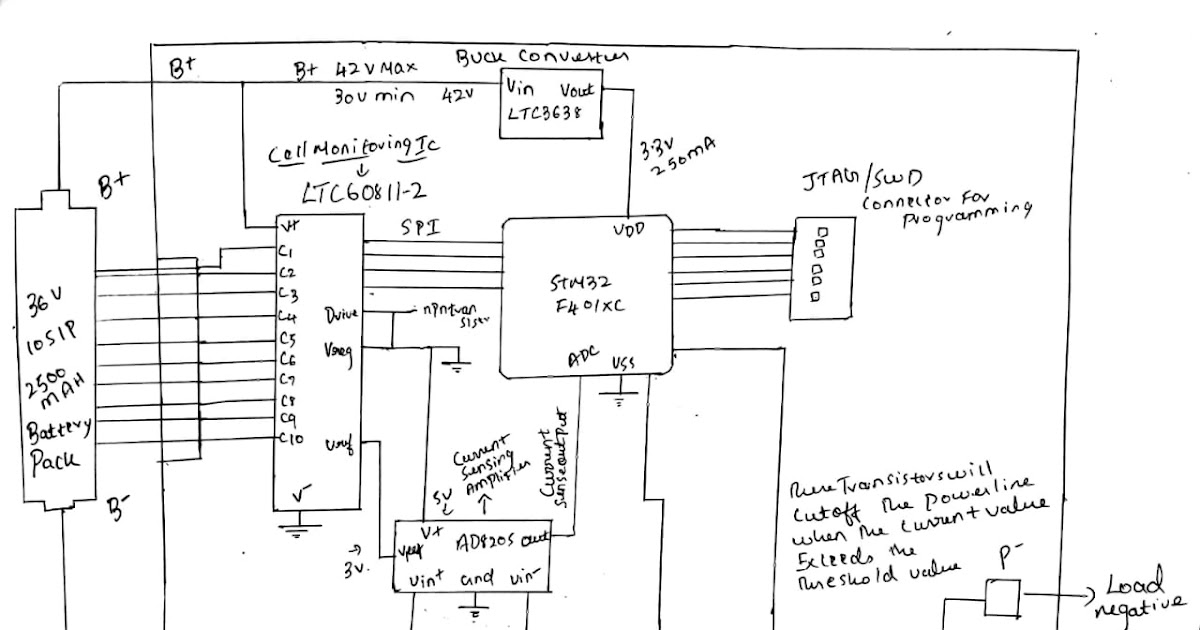 Buck Converter
B+
B+ 42V Max
30V min 42V
Vin Vout
LTC3638
3.3V
250mA
Cell Monitoring Ic
LTC60811-2
B+
36V
10S1P
2500
mAH
Battery
Pack
B-
V+
C1
C2
C3
C4
C5
C6
C7
C8
C9
C10
V-
Drive
Vreg
Vref
SPI
npn tran
sistor
VDD
STM32
F401XC
ADC VSS
JTAG/SWD
Connector For
Programming
Current
Sensing
Amplifier
5V
Current
Sense output
3V.
V+
Vref AD8205 out
Vin+ and Vin-
These Transistors will
cutoff the powerline
when the current value
Exceeds the
threshold value
P-
Load
negative